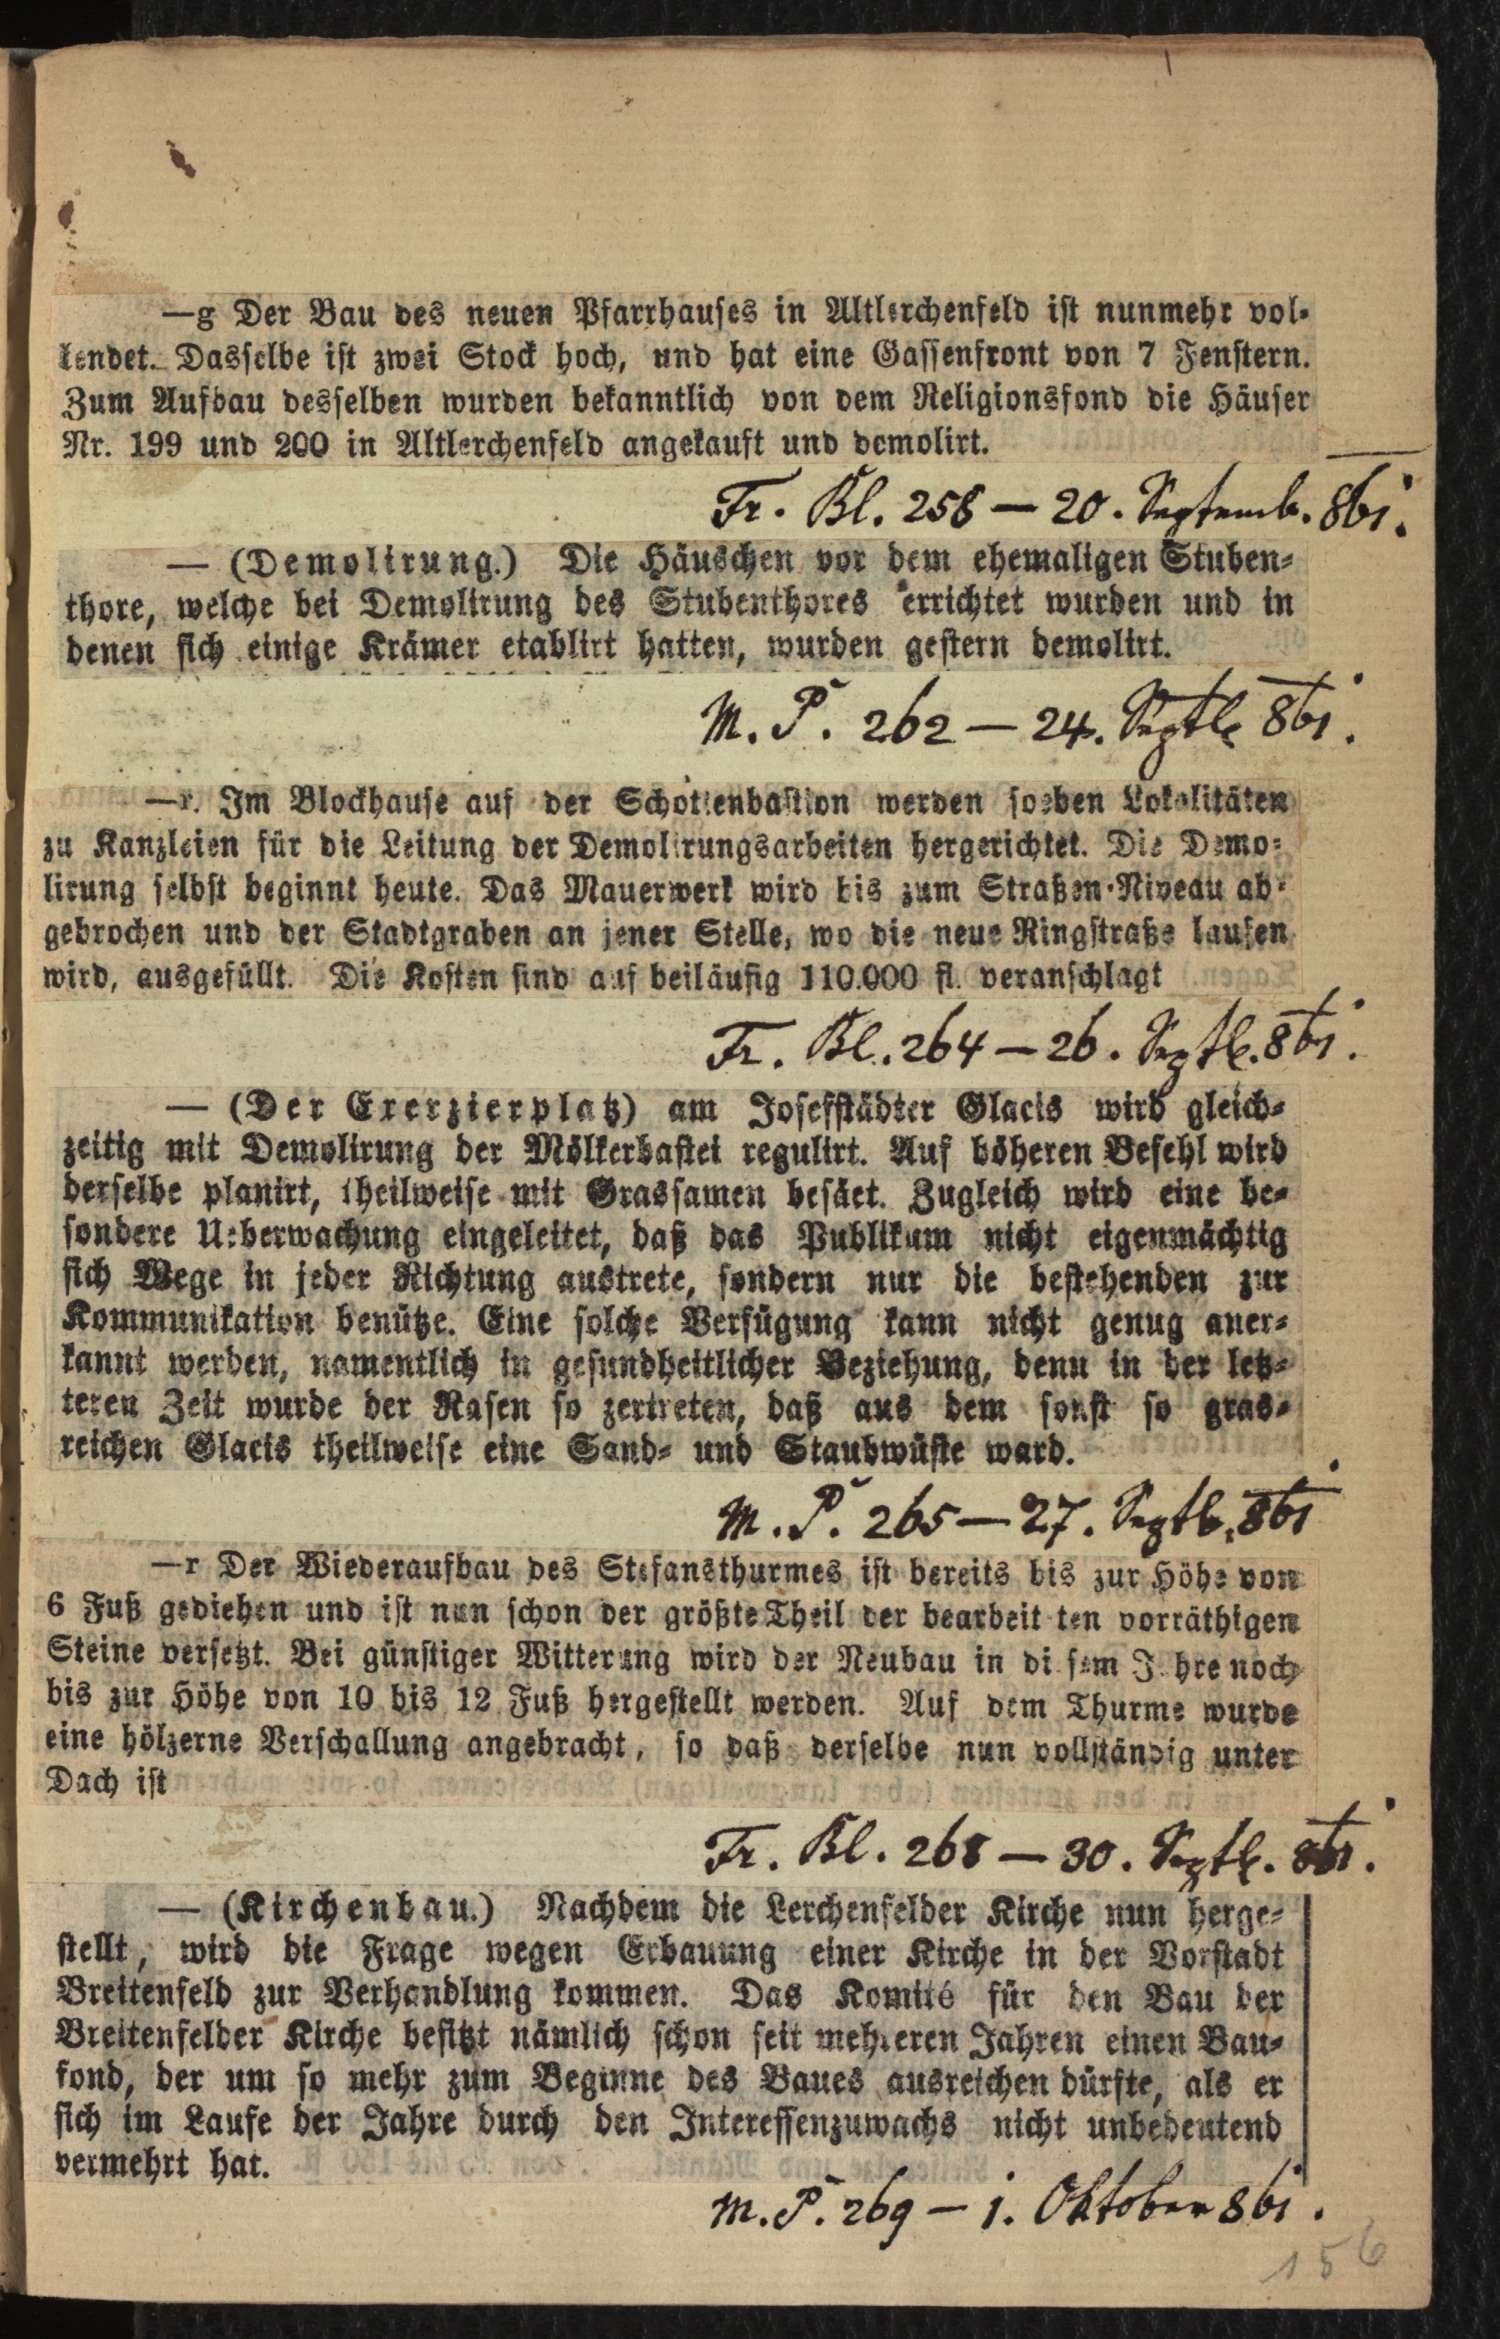 —g Der Bau des neuen Pfarrhauses in Altlerchenfeld ist nunmehr vol-
lendet. Dasselbe ist zwei Stock hoch, und hat eine Gassenfront von 7 Fenstern.
Zum Aufbau desselben wurden bekanntlich von dem Religionsfond die Häuser
Nr. 199 und 200 in Altlerchenfeld angekauft und demolirt.
Fr. Bl. 258 — 20. Septemb. 861.
— (Demolirung.) Die Häuschen vor dem ehemaligen Stuben-
thore, welche bei Demolirung des Stubenthores errichtet wurden und in
denen sich einige Krämer etablirt hatten, wurden gestern demolirt.
M. P. 262 — 24. Septb. 861.
—r. Im Blockhause auf der Schottenbastion werden soeben Lokalitäten
zu Kanzleien für die Leitung der Demolirungsarbeiten hergerichtet. Die Demo-
lirung selbst beginnt heute. Das Mauerwerk wird bis zum Straßen-Niveau ab-
gebrochen und der Stadtgraben an jener Stelle, wo die neue Ringstraße laufen
wird, ausgefüllt. Die Kosten sind auf beiläufig 110.000 fl. veranschlagt
Fr. Bl. 264 — 26. Septb. 861.
— (Der Exerzierplatz) am Josefstädter Glacis wird gleich-
zeitig mit Demolirung der Mölkerbastei regulirt. Auf höheren Befehl wird
derselbe planirt, theilweise mit Grassamen besäet. Zugleich wird eine be-
sondere Ueberwachung eingeleitet, daß das Publikum nicht eigenmächtig
sich Wege in jeder Richtung austrete, sondern nur die bestehenden zur
Kommunikation benütze. Eine solche Verfügung kann nicht genug aner-
kannt werden, namentlich in gesundheitlicher Beziehung, denn in der letz-
teren Zeit wurde der Rasen so zertreten, daß aus dem sonst so gras-
reichen Glacis theilweise eine Sand- und Staubwüste ward.
M. P. 265 — 27. Septb. 861
—r Der Wiederaufbau des Stefansthurmes ist bereits bis zur Höhe von
6 Fuß gediehen und ist nun schon der größte Theil der bearbeit ten vorräthigen
Steine versetzt. Bei günstiger Witterung wird der Neubau in di sem J hre noch
bis zur Höhe von 10 bis 12 Fuß hergestellt werden. Auf dem Thurme wurde
eine hölzerne Verschallung angebracht, so daß derselbe nun vollständig unter
Dach ist
Fr. Bl. 268 — 30. Septb. 861.
— (Kirchenbau.) Nachdem die Lerchenfelder Kirche nun herge-
stellt, wird die Frage wegen Erbauung einer Kirche in der Vorstadt
Breitenfeld zur Verhandlung kommen. Das Komité für den Bau der
Breitenfelder Kirche besitzt nämlich schon seit mehreren Jahren einen Bau-
fond, der um so mehr zum Beginne des Baues ausreichen dürfte, als er
sich im Laufe der Jahre durch den Interessenzuwachs nicht unbedeutend
vermehrt hat.
M. P. 269 — 1. Oktober 861.
156